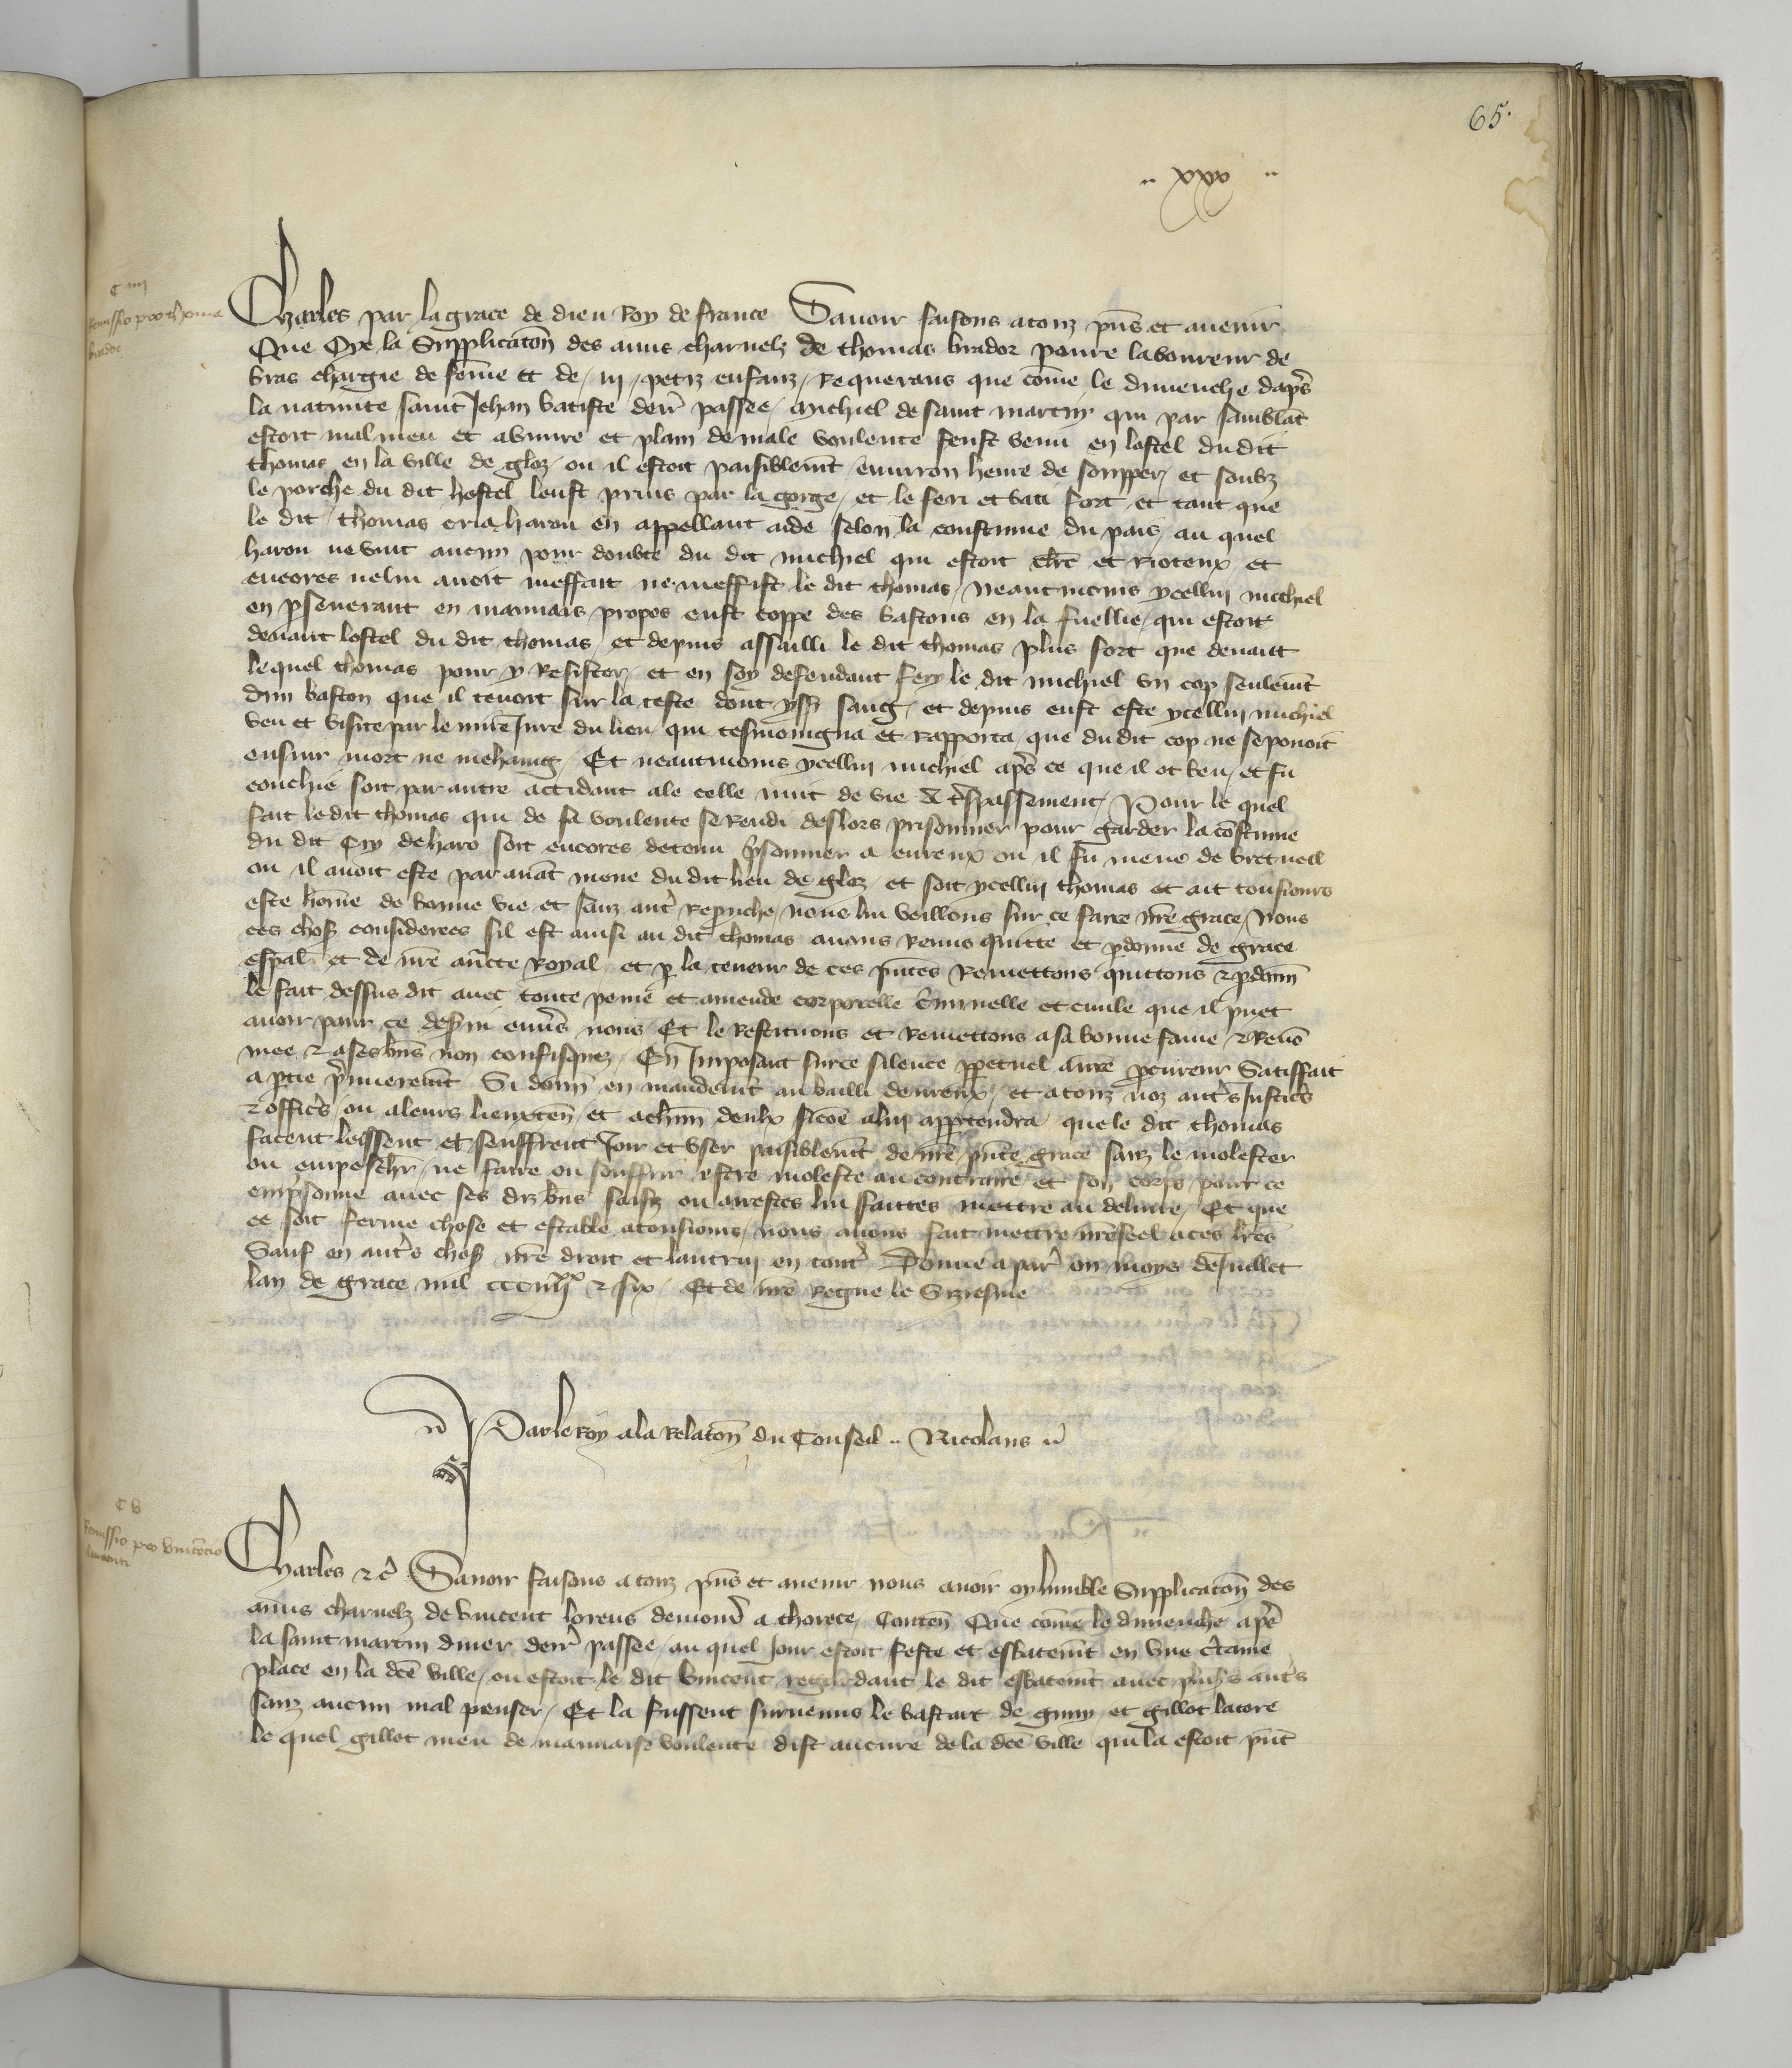 65.
·· xxx ··
C IIII
Remissio pro thoma
brador
Charles par la grace de dieu Roy de france Savoir faisons a touz pñs et avenir
Que Oye la Supplicatoñ des amis charnelz de thomas brador povre laboureur de
bras chargie de feme et de / iij / petiz enfanz / Requerans que come le dimenche dap's
la nativite saint Jehan batiste deñr passee / Michiel de saint martin qui par samblãt
estoit mal meu et abuvre et plain de male voulente feust venu en lostel du dit
thomas en la ville de gloz / ou il estoit paisiblemẽt environ heure de soupper / et soubz
le porche du dit hostel leust prins par la gorge / et le feri et bati fort et tant que
le dit thomas cria harou en appellant aide selon la coustume du pais / au quel
harou ne vint aucun pour doubte du dit michiel qui estoit clrc et Rioteux et
encores ne lui avoit meffait ne meffist le dit thomas / Neantmoins ycellui michiel
en p̱severant en mauvais propos eust coppe des bastons en la fuellie / qui estoit
devant lostel du dit thomas / et depuis assailli le dit thomas plus fort que devant
lequel thomas pour y Resister / et en soy defendant fery le dit michiel un cop seulemẽt
dun baston que il tenoit sur la teste dont yssi sang / et depuis eust este ycellui michiel
veu et visite par le mire Jure du lieu qui tesmoingna et rapporta que du dit cop ne se povoit
ensuir mort ne mehaing / Et neantmoins ycellui michiel ap's ce que il ot beu / et fu
couchie soit par autre accidant ale celle nuit de vie a t'spassement / Pour le quel
fait le dit thomas qui de sa voulente se Rendi deslors prisonnier pour garder la cõstume
du dit Cry de haro soit encores detenu p'sonnier a evreux ou il fu mene de bretueil
ou il avoit este par avãt mene du dit lieu de gloz / et soit ycellui thomas et ait tousiours
este home de bonne vie et sanz aut' Repruche / nous lui veillons sur ce faire nr̃e grace / Nous
ces chos' considerees sil est ainsi au dit thomas avons Remis quitte et p̱donne de grace
esp̃al et de nr̃e auc̃te Royal et p̱ la teneur de ces p̃ntes Remettons quittons & p̱donñ
le fait dessus dit avec toute peine et amende corporelle c'iminelle et civile que il puet
avoir pour ce desẽvi envs nous / Et le Restituons et Remettons a sa bonne fame & Renõ
mee & a ses bñs non confisquez / En Imposant sur ce silence pp̱etuel a nr̃e p̱cureur Satiffait
a p̱tie p'mieremẽt Si donñ en mandemt au bailli devreux / et a touz noz aut's Justic's
& offic's / ou a leurs lieuxteñ / et a chũn deulx sicoe a lui app̱tendra que le dit thomas
facent leissent et seuffrent Joir et user paisiblemt de nr̃e p̃nte grace sanz le molester
ou empesch̃r / ne faire ou souffrir estre moleste au contraire / et son corps pour ce
emp'sonne avec ses diz bñs saisiz ou arrestes lui faittes mettre au delivre / Et que
ce soit ferme chose et estable a tousiours / nous avons fait mettre nr̃e seel a ces lr̃es
Sauf en aut's chos' nr̃e droit et lautruy en tout' Donne a par' ou moys de Juillet
lan de grace mil CCCiiijxx & six / Et de nr̃e Regne le Siziesme
Par le Roy a la Relatoñ du Conseil ·· Nicolaus
C V
Remissio pro vincẽcio
laurenti
Charles &c' Savoir faisons a touz pñs et avenir nous avoir oy lumble Supplicatoñ des
amis charnelz de vincent lorens demour' a thorote / Conteñ Que come le dimenche ap's
la saint martin diver deñr' passee / au quel Jour estoit feste et esbatemẽt en une c'taine
place en la dc̃e ville / ou estoit le dit vincent regardant le dit esbatemẽt avec plus's aut's
sanz aucun mal penser / Et la fussent survenus le bastart de guny et gillot lacore
le quel gillot meu de mauvaise voulente dist au cure de la dc̃e ville qui la estoit p̃nt